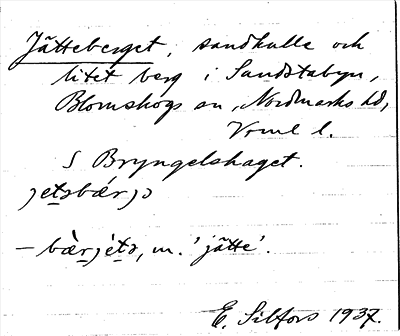 Jätteberget, sandkulle och
litet berg i Sandstabyn,
Blomskogs sn, Nordmarks hd,
Vrml l.
S Bryngelshaget.
jetsbærjɔ
– bær jèts, m. 'jätte'.
E. Silfors 1937.